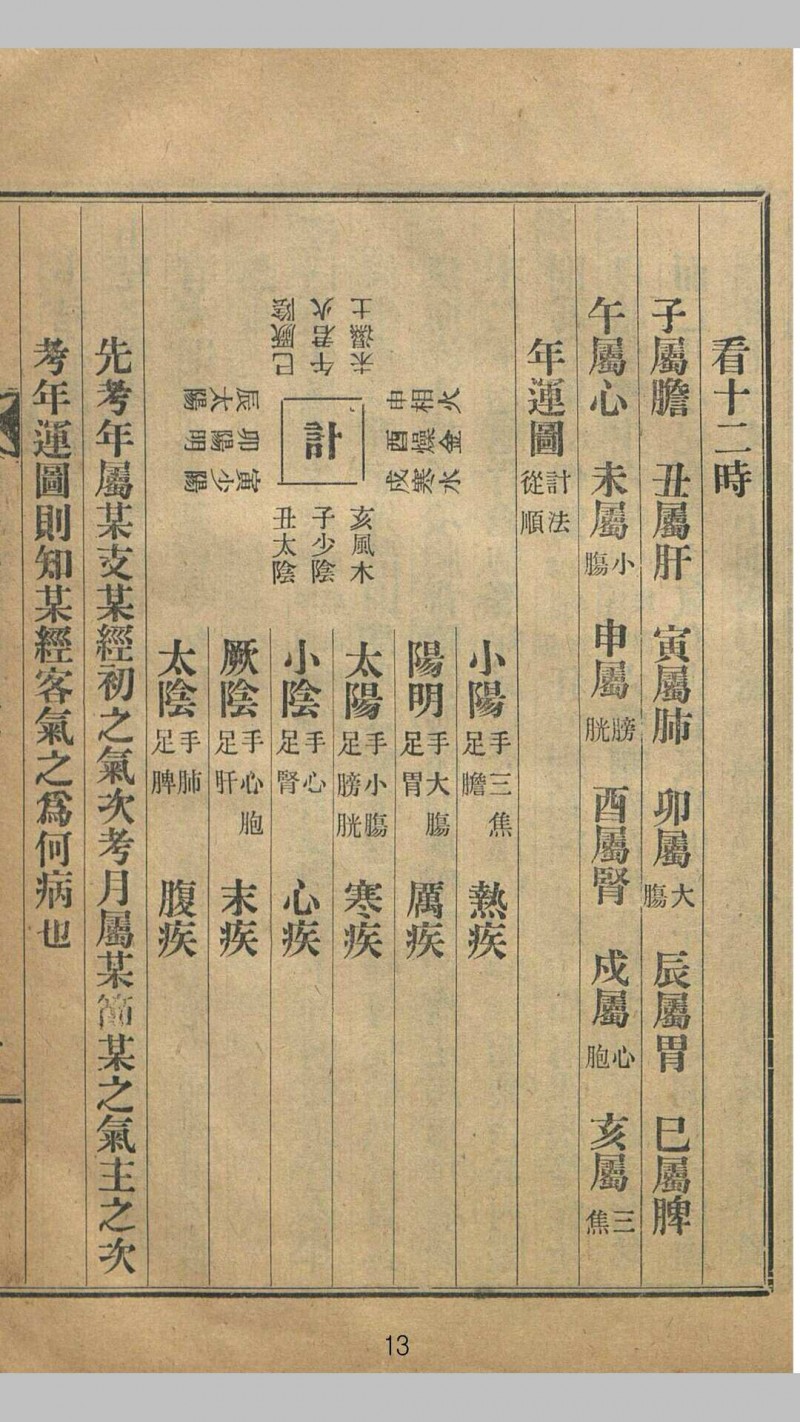 看十二時
子屬膽 丑屬肝 寅屬肺 卯屬大腸 辰屬胃 巳屬脾
午屬心 未屬小腸 申屬膀胱 酉屬腎 戌屬心胞 亥屬三焦
年運圖 計法從順
未濕土
午君火
巳厥陰
申相火
酉燥金
戌寒水
計
辰太陽
卯陽明
寅少陽
亥風木
子少陰
丑太陰
小陽 手三焦 足膽 熱疾
陽明 手大腸 足胃 厲疾
太陽 手小腸 足膀胱 寒疾
小陰 手心 足腎 心疾
厥陰 手心胞 足肝 末疾
太陰 手肺 足脾 腹疾
先考年屬某支某經初之氣次考月屬某節某之氣主之次
考年運圖則知某經客氣之爲何病也
13